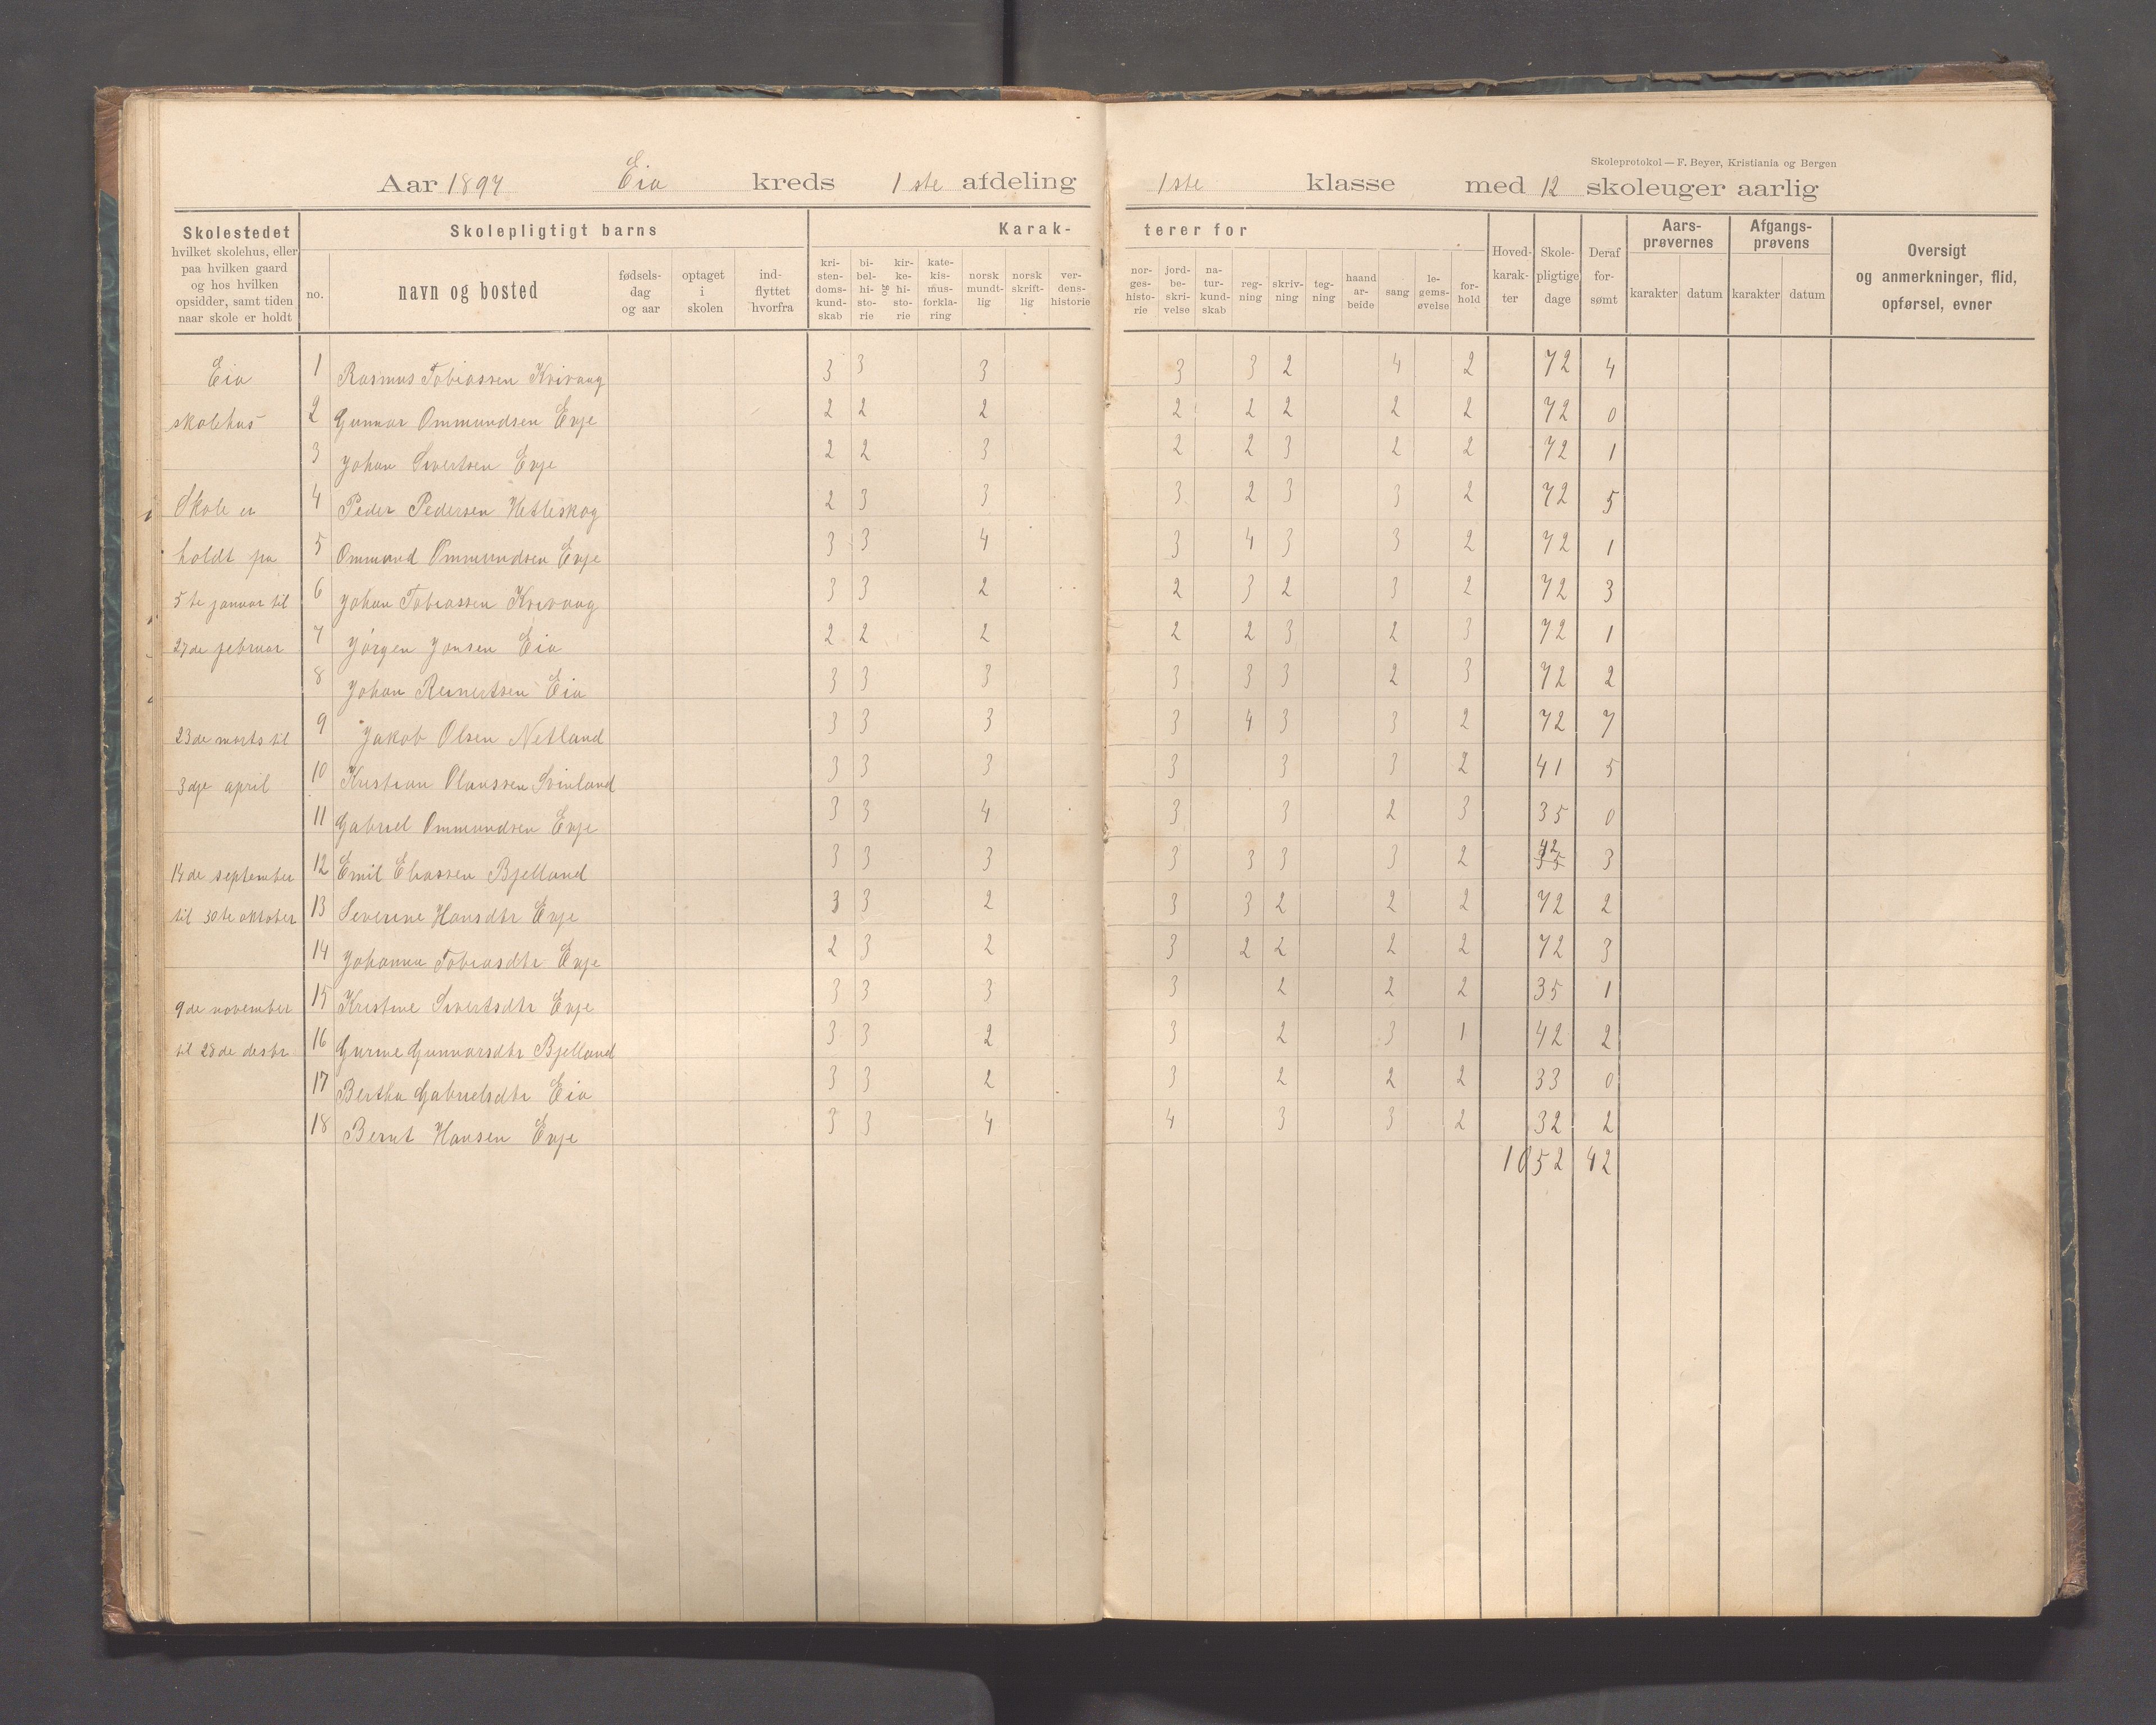 Skoleprotokol — F. Beyer, Kristiania og Bergen
Aar 1897 Eia kreds 1ste afdeling 1ste klasse med 12 skoleuger aarlig
Skolestedet
hvilket skolehus, eller
paa hvilken gaard
og hos hvilken
opsidder, samt tiden
naar skole er holdt
Skolepligtigt barns
no. navn og bosted fødsels-dag og aar optaget i skolen ind-flyttet hvorfra
Karakterer for
kri-sten-doms-kund-skab bi-bel-hi-sto-rie og kir-ke-hi-sto-rie kate-kis-mus-forkla-ring norsk mundt-lig norsk skrift-lig ver-dens-historie nor-ges-histo-rie jord-be-skri-velse na-tur-kund-skab reg-ning skriv-ning teg-ning haand ar-beide sang le-gems-øvelse for-hold
Hoved-karak-ter Skole-pligtige dage Deraf for-sømt
Aars-prøvernes karakter datum
Afgangs-prøvens karakter datum
Oversigt og anmerkninger, flid, opførsel, evner
Eia 1 Rasmus Tobiassen Kvivaag 3 3 3 3 3 2 4 2 72 4
skolehus 2 Gunnar Ommundsen Evje 2 2 2 2 2 2 2 2 72 0
3 Johan Sivertsen Evje 2 2 3 2 2 3 2 2 72 1
Skole er 4 Peder Pedersen Hetleskog 2 3 3 3 2 3 3 2 72 5
holdt fra 5 Ommund Ommundsen Evje 3 3 4 3 4 3 3 2 72 1
5te januar til 6 Johan Tobiassen Kvivaag 3 3 2 2 3 2 3 2 72 3
27de februar 7 Jørgen Jonsen Eia 2 2 2 2 2 3 2 3 72 1
8 Johan Reinertsen Eia 3 3 3 3 3 3 2 3 72 2
23de marts til 9 Jakob Olsen Netland 3 3 3 3 4 3 3 2 72 7
3dje april 10 Kristian Olaussen Svinland 3 3 3 3 3 3 2 41 5
11 Gabriel Ommundsen Evje 3 3 4 3 3 2 3 35 0
14de september 12 Emil Eliassen Bjelland 3 3 3 3 3 3 3 2 42 35 3
til 30te oktober 13 Severine Hansdtr Evje 3 3 2 3 3 2 2 2 72 2
14 Johanna Tobiasdtr Evje 2 3 2 3 2 2 2 2 72 3
9de november 15 Kristine Sivertsdtr Evje 3 3 3 3 2 2 2 35 1
til 28de desbr 16 Gurine Gunnarsdtr Bjelland 3 3 2 3 2 3 1 42 2
17 Bertha Gabrielsdtr Eia 3 3 2 3 2 2 2 33 0
18 Bernt Hansen Evje 3 3 4 4 3 3 2 32 2
1052 42